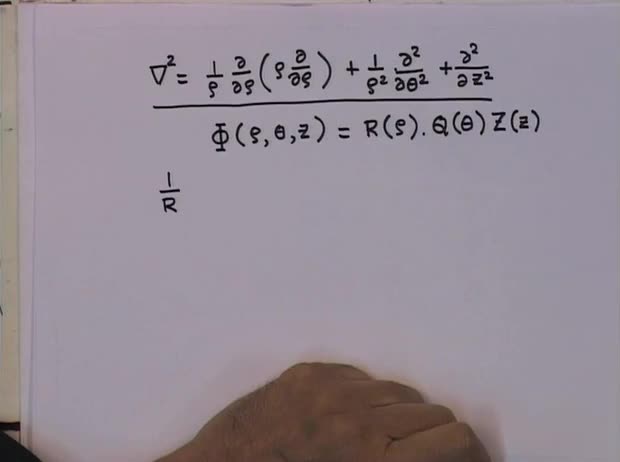 ∇² = 1/ρ ∂/∂ρ (ρ ∂/∂ρ) + 1/ρ² ∂²/∂θ² + ∂²/∂z²
Φ(ρ,θ,z) = R(ρ).Q(θ)Z(z)
1/R